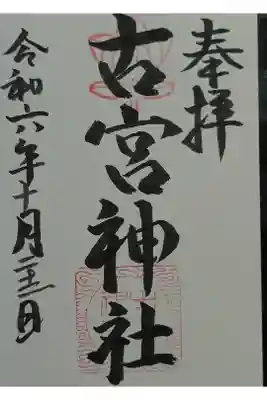 奉拝
古宮神社
令和六年十月二十二日